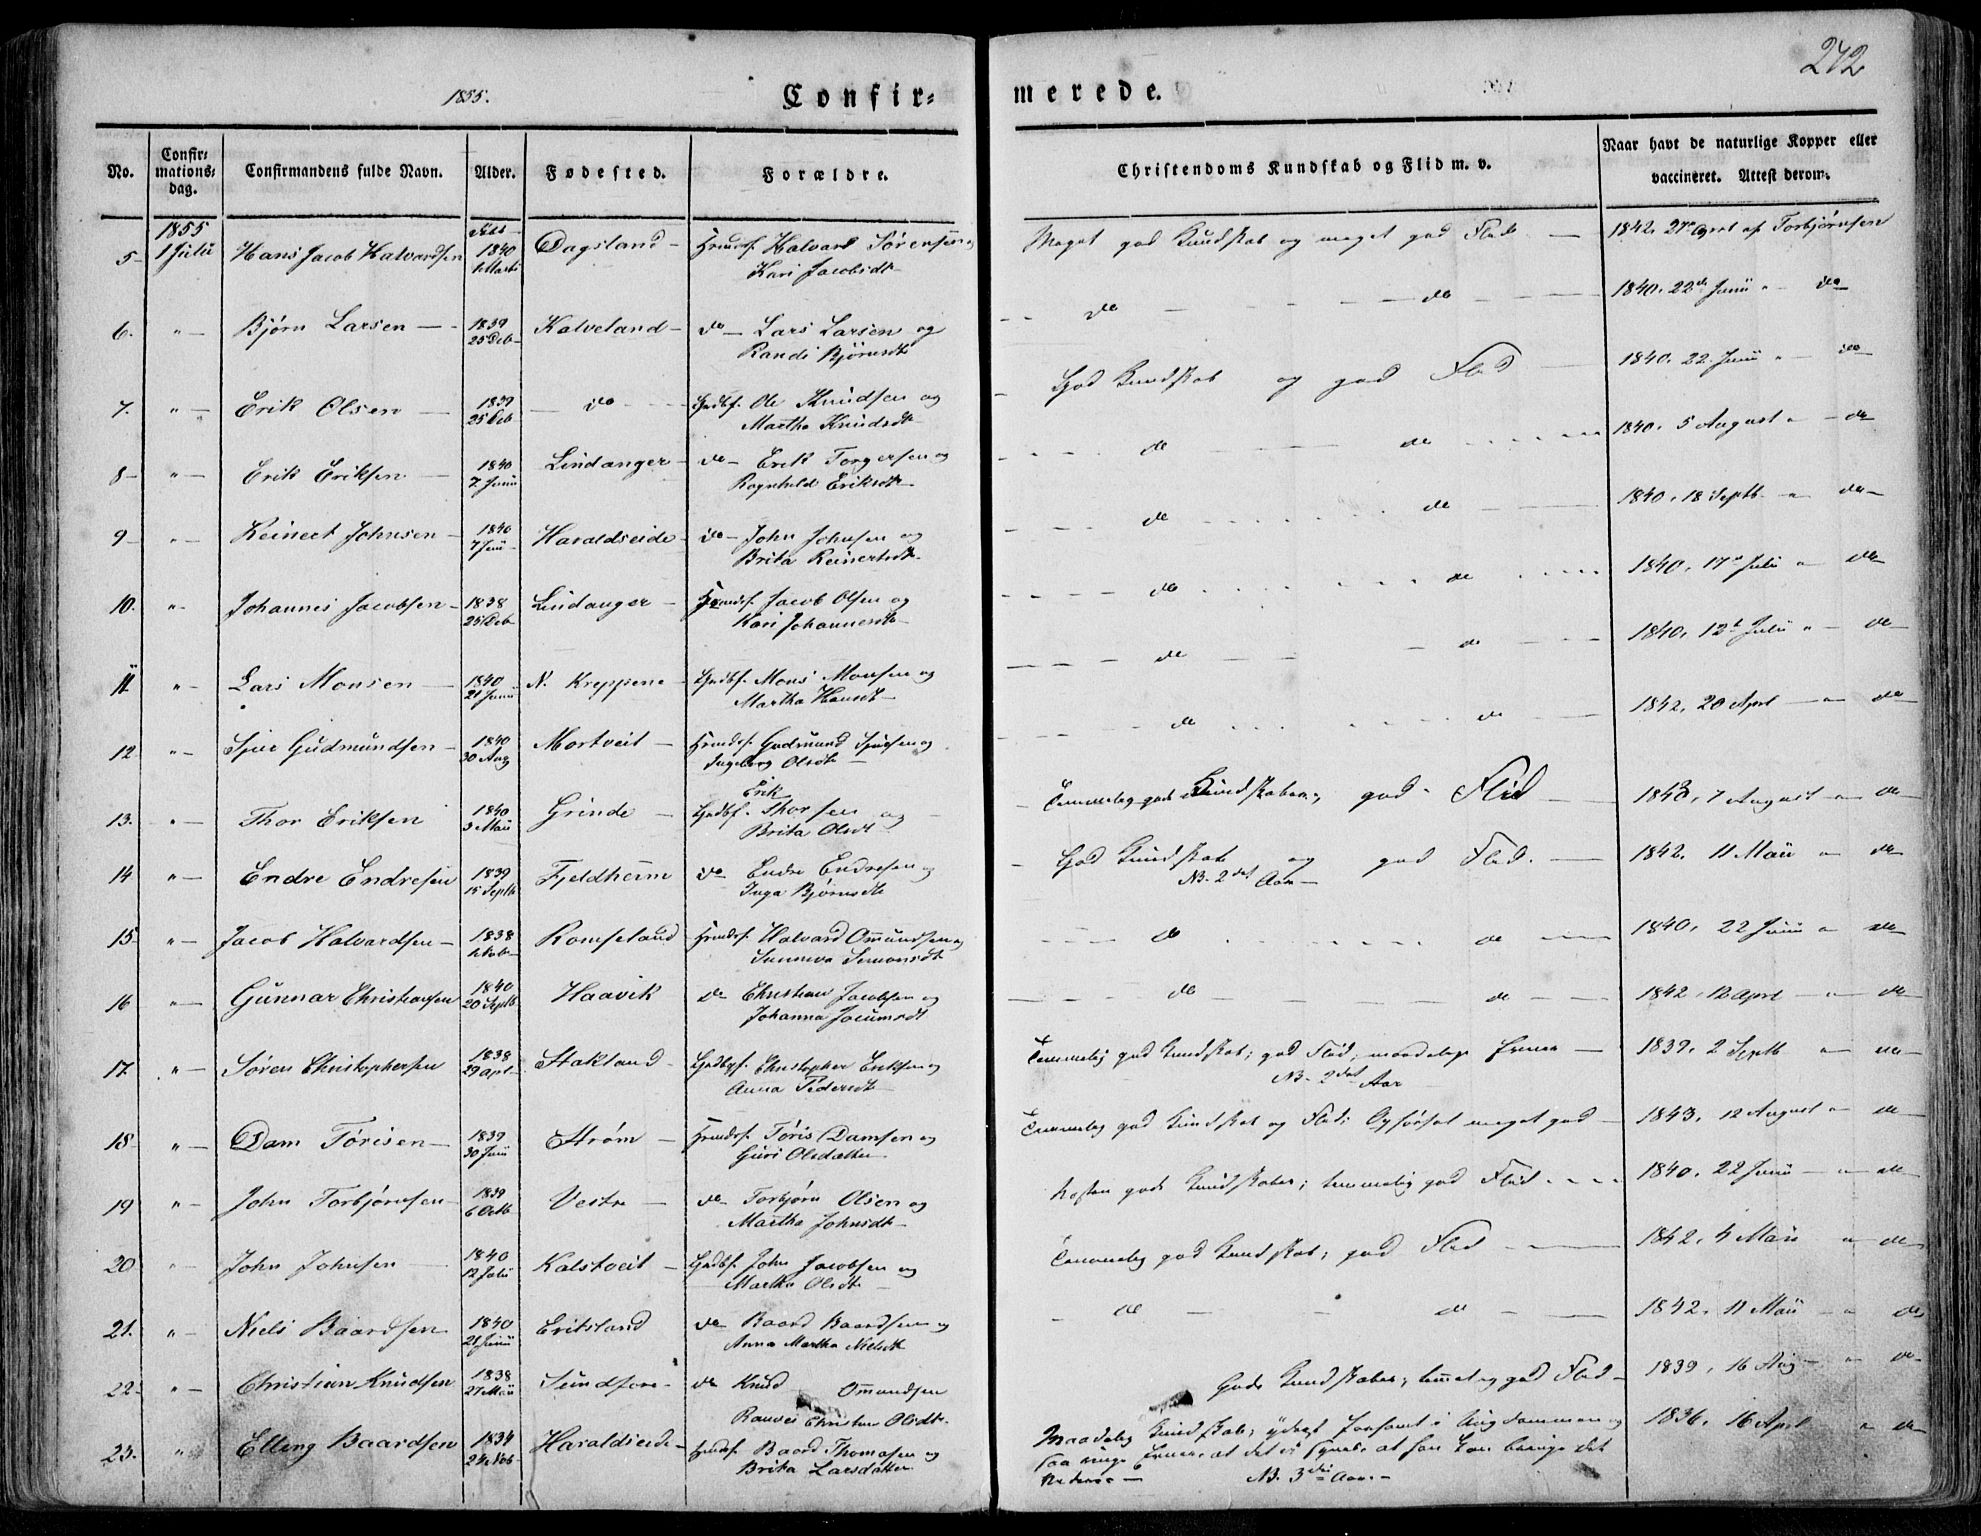 242
1855.
Confir=
merede.
No.
Confir=
mations=
dag.
Confirmandens fulde Navn.
Alder.
Fødested.
Forældre.
Christendoms Kundskab og Flid m. v.
Naar havt de naturlige Kopper eller
vaccineret. Attest derom.
1855
5 1 Juli Hans Jacob Halvardsen 1840 Dagsland Halvard Sørensen
Kari Jacobsdt
Meget god Kundskab og meget god Flid 1842. 27 Aprl af Torbjørnsen
6. " Bjørn Larsen 1839 Kalveland do Lars Larsen og
Randi Bjørnsdt
do do 1840. 22de Junii " do
7. " Erik Olsen 1839 do Ole Knudsen og
Martha Knudsdt
God Kundskab og god Flid 1840. 22 Junii " do
8 " Erik Eriksen 1840 7 Junii Lindanger do Erik Torgersen og
Ragnhild Eriksdt
do do 1840. 5 August " do
9 " Reinert Johnsen 1840 7 Junii Haraldseide do John Johnsen og
Brita Reinertsdt
do do 1840. 18 Septb " do
10. " Johannes Jacobsen 1838 Lindanger Jacob Olsen og
Kari Johannesdt
do do 1840. 17 Juli " do
11. " Lars Monsen 1840 21 Junii N. Kreppene Mons Monsen og
Martha Hansdt
do do 1840. 12 Juli " do
12 " Gudmundsen 1840 30 Aug Mortveit Gudmund og
Ingeborg Olsdt
do do 1842. 20 Aprl " do
13. " Thor Eriksen 1840 3 Maii Grinde Erik Thorsen og
Brita Olsdt
Temmelig gode Kundskaber, god Flid 7 August " do
14 " Endre Endresen 1839 15 Septb Fjeldheim do Endre Endresen og
Inga Bjørnsdt
God Kundskab og god Flid. 1842. 11 Maii " do
NB. 2det Aar
15 " Jacob Halvardsen 1838 Romseland Halvard Omundsen og
Sunneva Simonsdt
do do 1840. 22 Junii " do
16 " Gunnar Christiansen 1840 20 Septb Haavik do Christian Jacobsen og
Johanna
do do 1842. 12 Aprl " do
17. " Søren Christophersen 1838 29 Aprl Stakland Christopher Eriksen og
Anna Pedersdt
Temmelig god Kundskab; god Flid; maadelige Evner 1839. 2 Septb " do
NB. 2det Aar
18 " Dam Tørisen 1839 30 Junii Strøm Tøris Damsen og
Guri Olsdatter
Temmelig god Kundskab og Flid; Opførsel meget god 1843. 12 August " do
19 " John Torbjørnsen 1839 6 Octb Vestre do Torbjørn Olsen og
Martha Johnsdt
Næsten gode Kundskaber; temmelig god Flid 1840. 22 Junii " do
20 " John Johnsen 1840 12 Juli Kalstveit John Jacobsen og
Martha Olsdt
Temmelig god Kundskab; god Flid 1842. 4 Maii " do
21. " Niels Baardsen 1840 21 Junii Eritsland do Baard Baardsen og
Anna Martha Nielsdt
do do 1842. 11 Maii " do
22 " Christian Knudsen 1838 27 Maii Sundføre do Knud Omundsen
Christine Olsdt
Gode Kundskaber; temmelig god Flid 1839. 16 Aug " do
23. " Elling Baardsen 1834 24 Nob Haraldseide Baard Thomasen og
Brita Larsdatter
Maadelig Kundskab; yderst forsømt i Ungdommen og
saa ringe Evner, at det ei synes at han kan bringe det
1836. 16 Aprl " do
NB. 3die Aar.